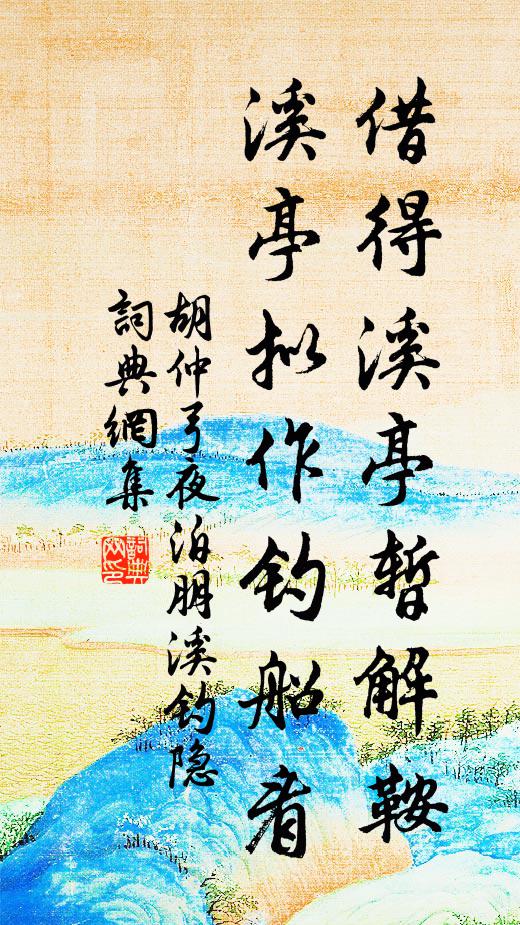 借得溪亭暫解鞍
溪亭拟作钓船看
胡仲弓夜泊朋溪钓隐
詞典網集
詞典網印